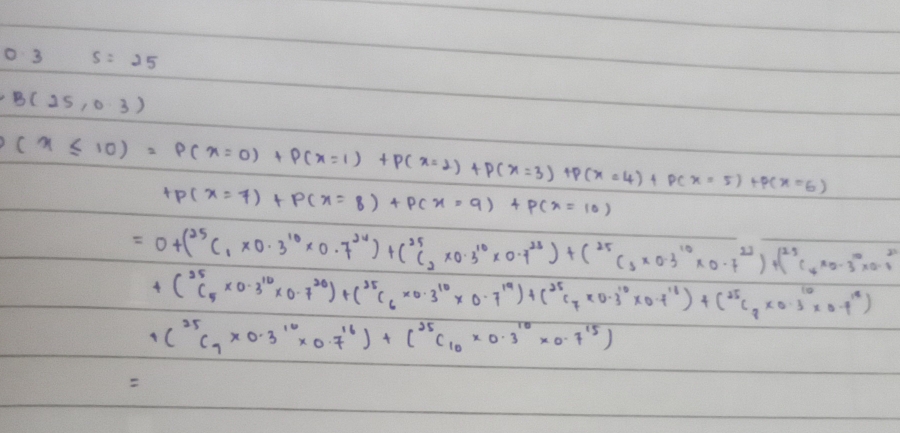 0.3 S = 25
B(25, 0.3)
(x ≤ 10) = P(x=0) + P(x=1) + P(x=2) + P(x=3) + P(x=4) + P(x=5) + P(x=6)
+P(x=7) + P(x=8) + P(x=9) + P(x=10)
= 0 + (²⁵C₁ × 0.3¹⁰ × 0.7²⁴) + (²⁵C₂ × 0.3¹⁰ × 0.7²³) + (²⁵C₃ × 0.3¹⁰ × 0.7²²) + (²⁵C₄ × 0.3¹⁰ × 0.
+ (²⁵C₅ × 0.3¹⁰ × 0.7²⁰) + (²⁵C₆ × 0.3¹⁰ × 0.7¹⁹) + (²⁵C₇ × 0.3¹⁰ × 0.7¹⁸) + (²⁵C₈ × 0.3¹⁰ × 0.7
+ (²⁵C₉ × 0.3¹⁰ × 0.7¹⁶) + (²⁵C₁₀ × 0.3¹⁰ × 0.7¹⁵)
=